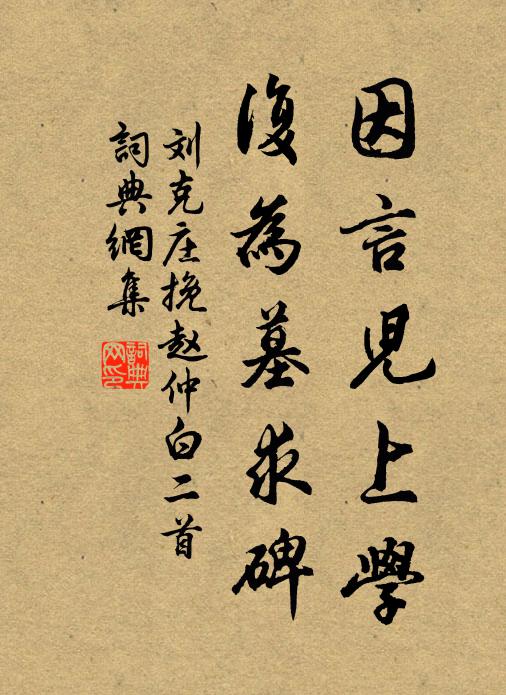 因言兒上學
復為墓求碑
刘克庄挽赵仲白二首
詞典網集
詞典
网印